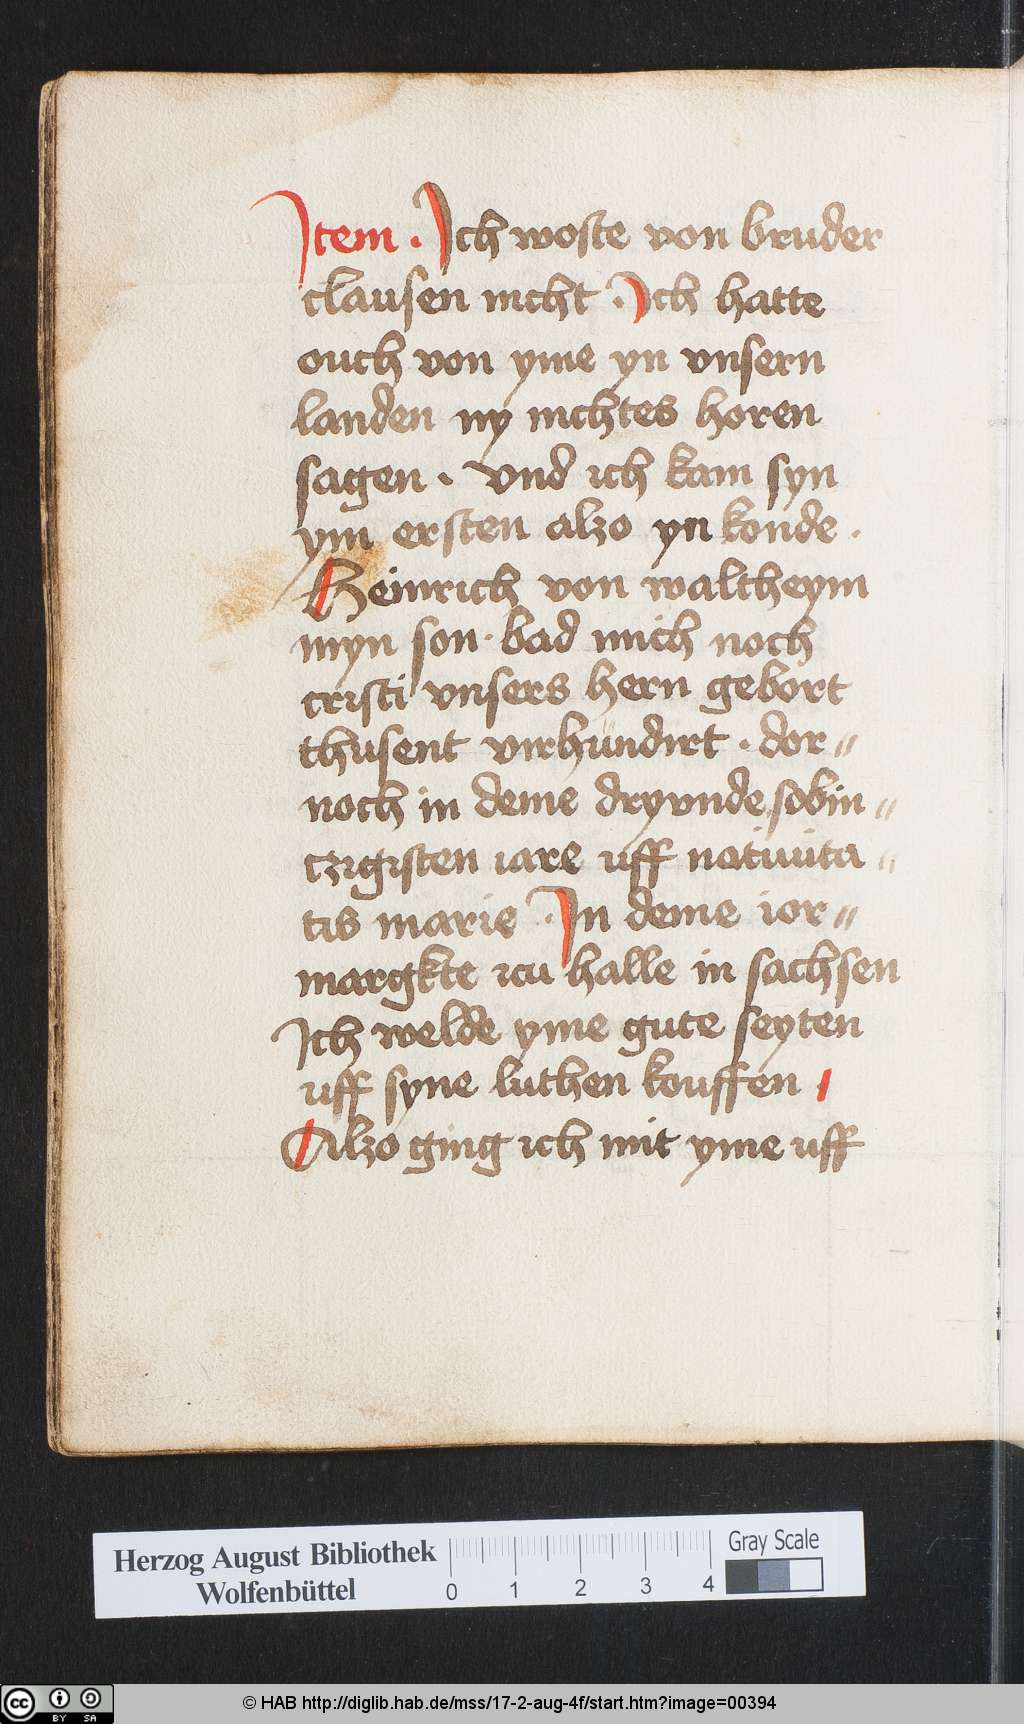 Item · Ich woste von bruder
clausen nicht · Ich hatte
ouch von yme yn vnsern
landen ny nichtes horen
sagen · vnd ich kam syn
ym ersten alzo yn konde ·
Heinrich von waltheym
myn son · bad mich noch
cristi vnsers hern gebort
thusent virhundirt · dor〃
noch in deme dryvnde sobin〃
czigisten iare uff natiuita〃
tis marie · In deme ior〃
margkte zcu halle in sachsen
Ich welde yme gute seyten
uff syne luthen kouffen ·
Alzo ging ich mit yme uff
Herzog August Bibliothek
Wolfenbüttel
0 1 2 3 4
Gray Scale
cc BY SA
© HAB http://diglib.hab.de/mss/17-2-aug-4f/start.htm?image=00394